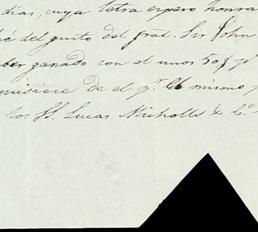 dias, cuya letra espero honra
del gusto del gral. Sir John
ber ganado con el unos 50 $ p
quisiere de el p.r el mismo p
los SS. Lucas Micholls & C.o